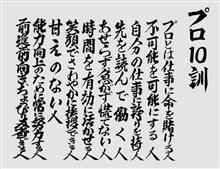 プロ10訓
プロとは仕事に命を賭ける人
不可能を可能にする人
自分の仕事に誇りを持つ人
先を読んで働く人
あせらず急がず慌てない人
時間を有効に活かせる人
笑顔でさわやかに挨拶できる人
甘えのない人
能力向上のために常に努力する人